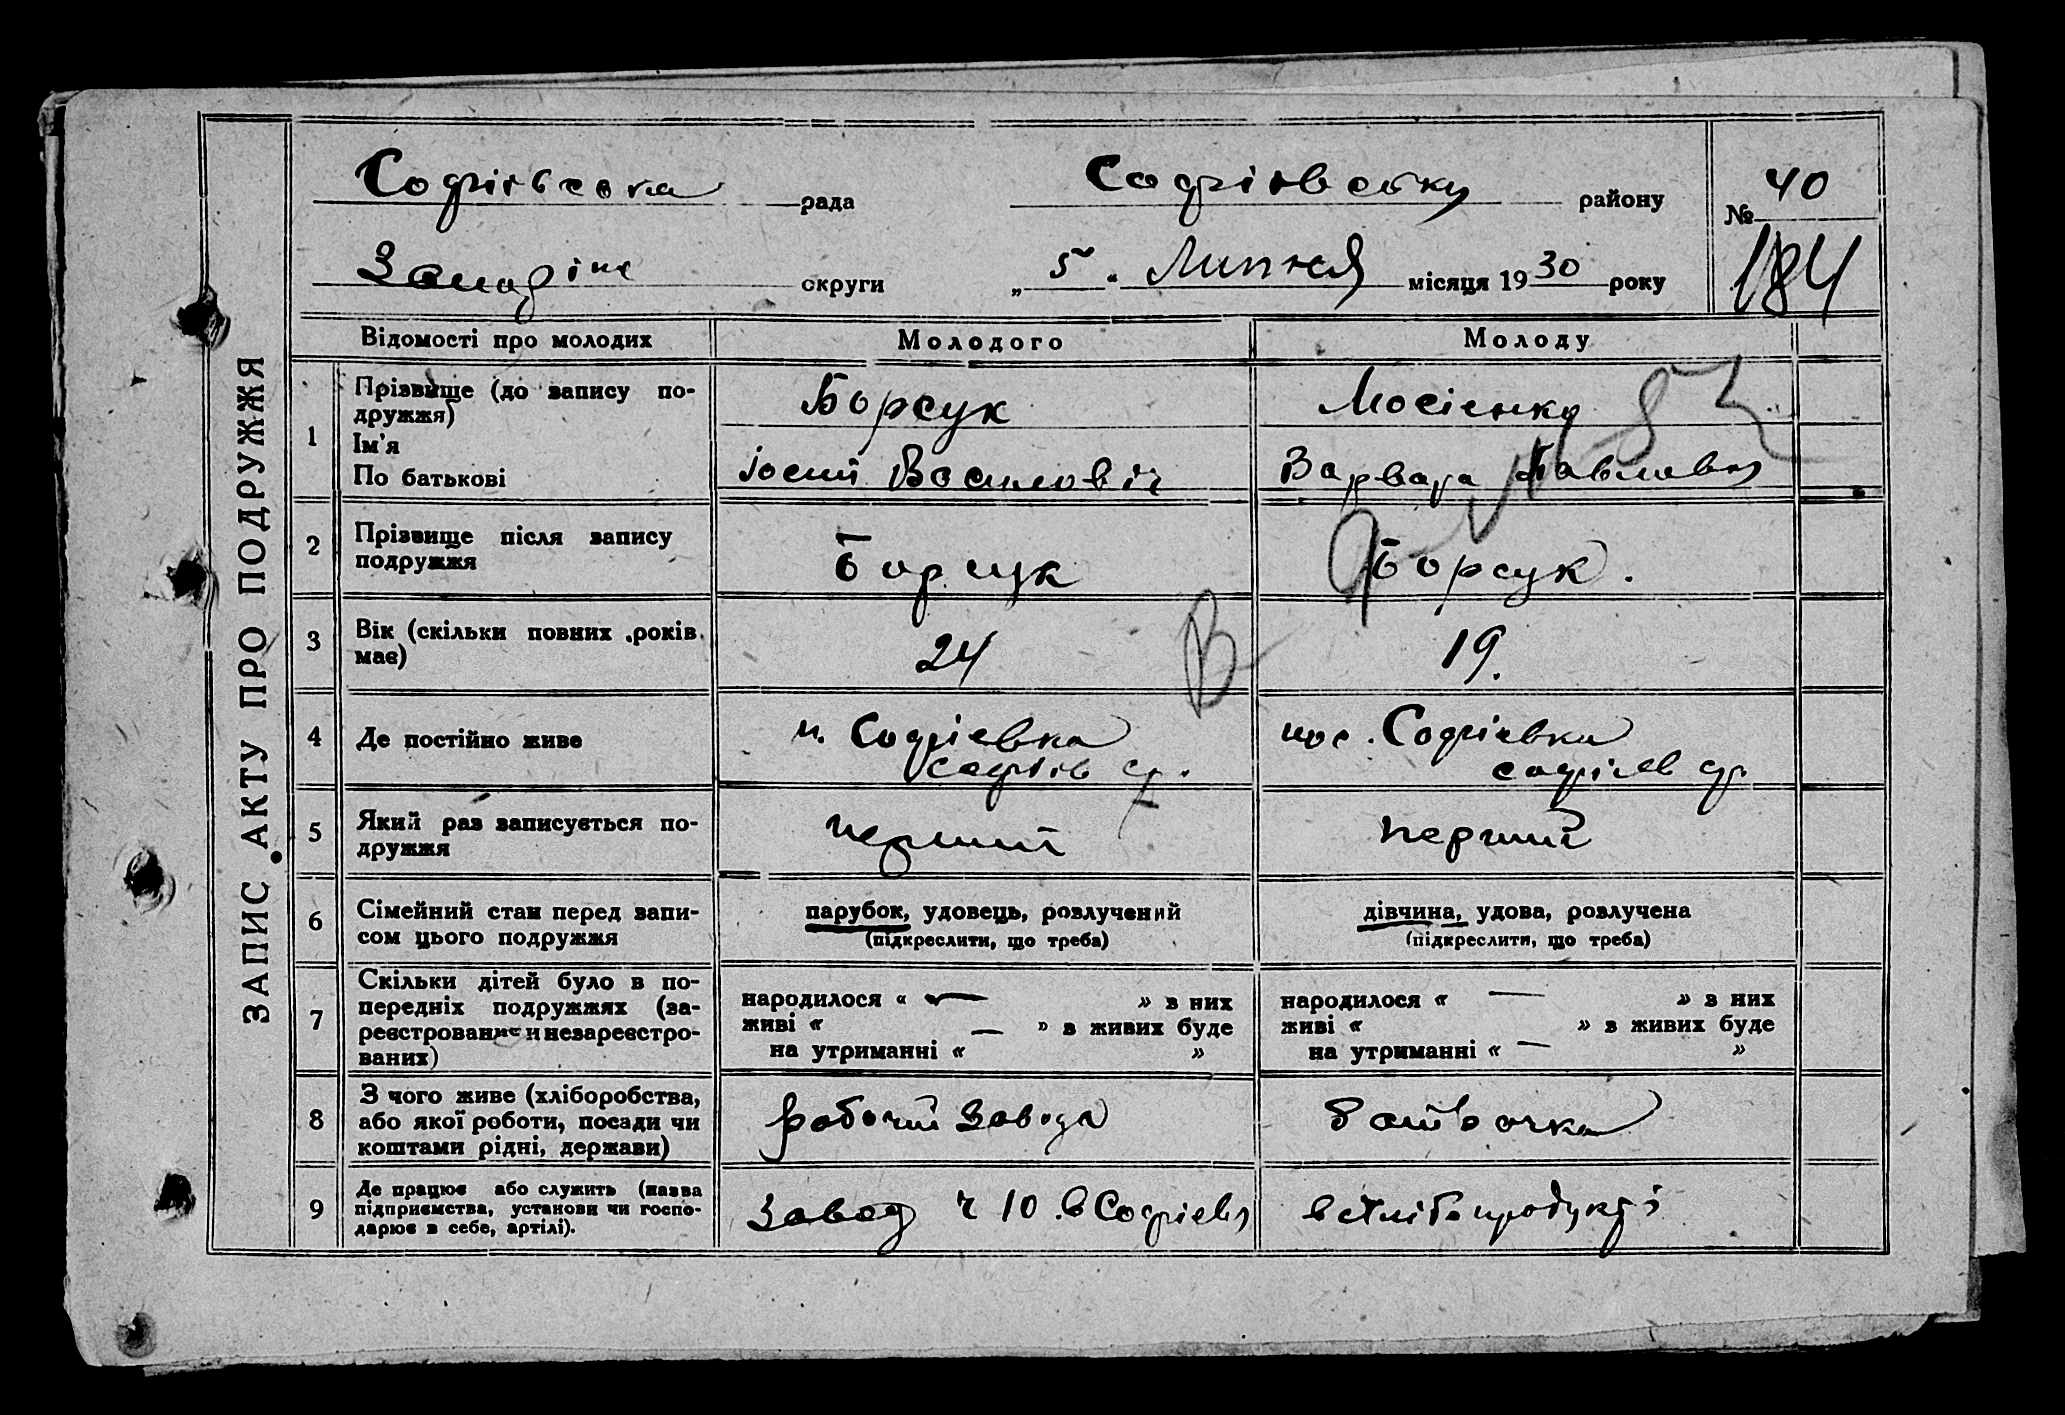 ЗАПИС АКТУ ПРО ПОДРУЖЖЯ
Софіївська рада
Софіївську району
№ 40
184
округи
„5“ Липня місяця 1930 року
Відомості про молодих
Молодого
Молоду
1
Прізвище (до запису подружжя)
Ім'я
По батькові
Борсук
Мосієнко
Василовіч
Варвара Павловна
2
Прізвище після запису
подружжя
Борсук
Борсук.
3
Вік (скільки повних років
має)
24
19.
В
4
Де постійно живе
Софіевка
пос. Софіевка
5
Який раз записується по-
дружжя
перший
перший
6
Сімейний стан перед запи-
сом цього подружжя
парубок, удовець, розлучений
(підкреслити, що треба)
дівчина, удова, розлучена
(підкреслити, що треба)
7
Скільки дітей було в по-
передніх подружжях (за-
реєстрованих и незареєстро-
ваних)
народилося « — » в них
живі « — » в живих буде
на утриманні « »
народилося « — » в них
живі « » в живих буде
на утриманні « — »
8
З чого живе (хліборобства,
або якої роботи, посади чи
коштами рідні, держави)
рабочий завода
9
Де працює або служить (назва
підприємства, установи чи госпо-
дарює в себе, артілі).
Завод ч 10 в Софіевк